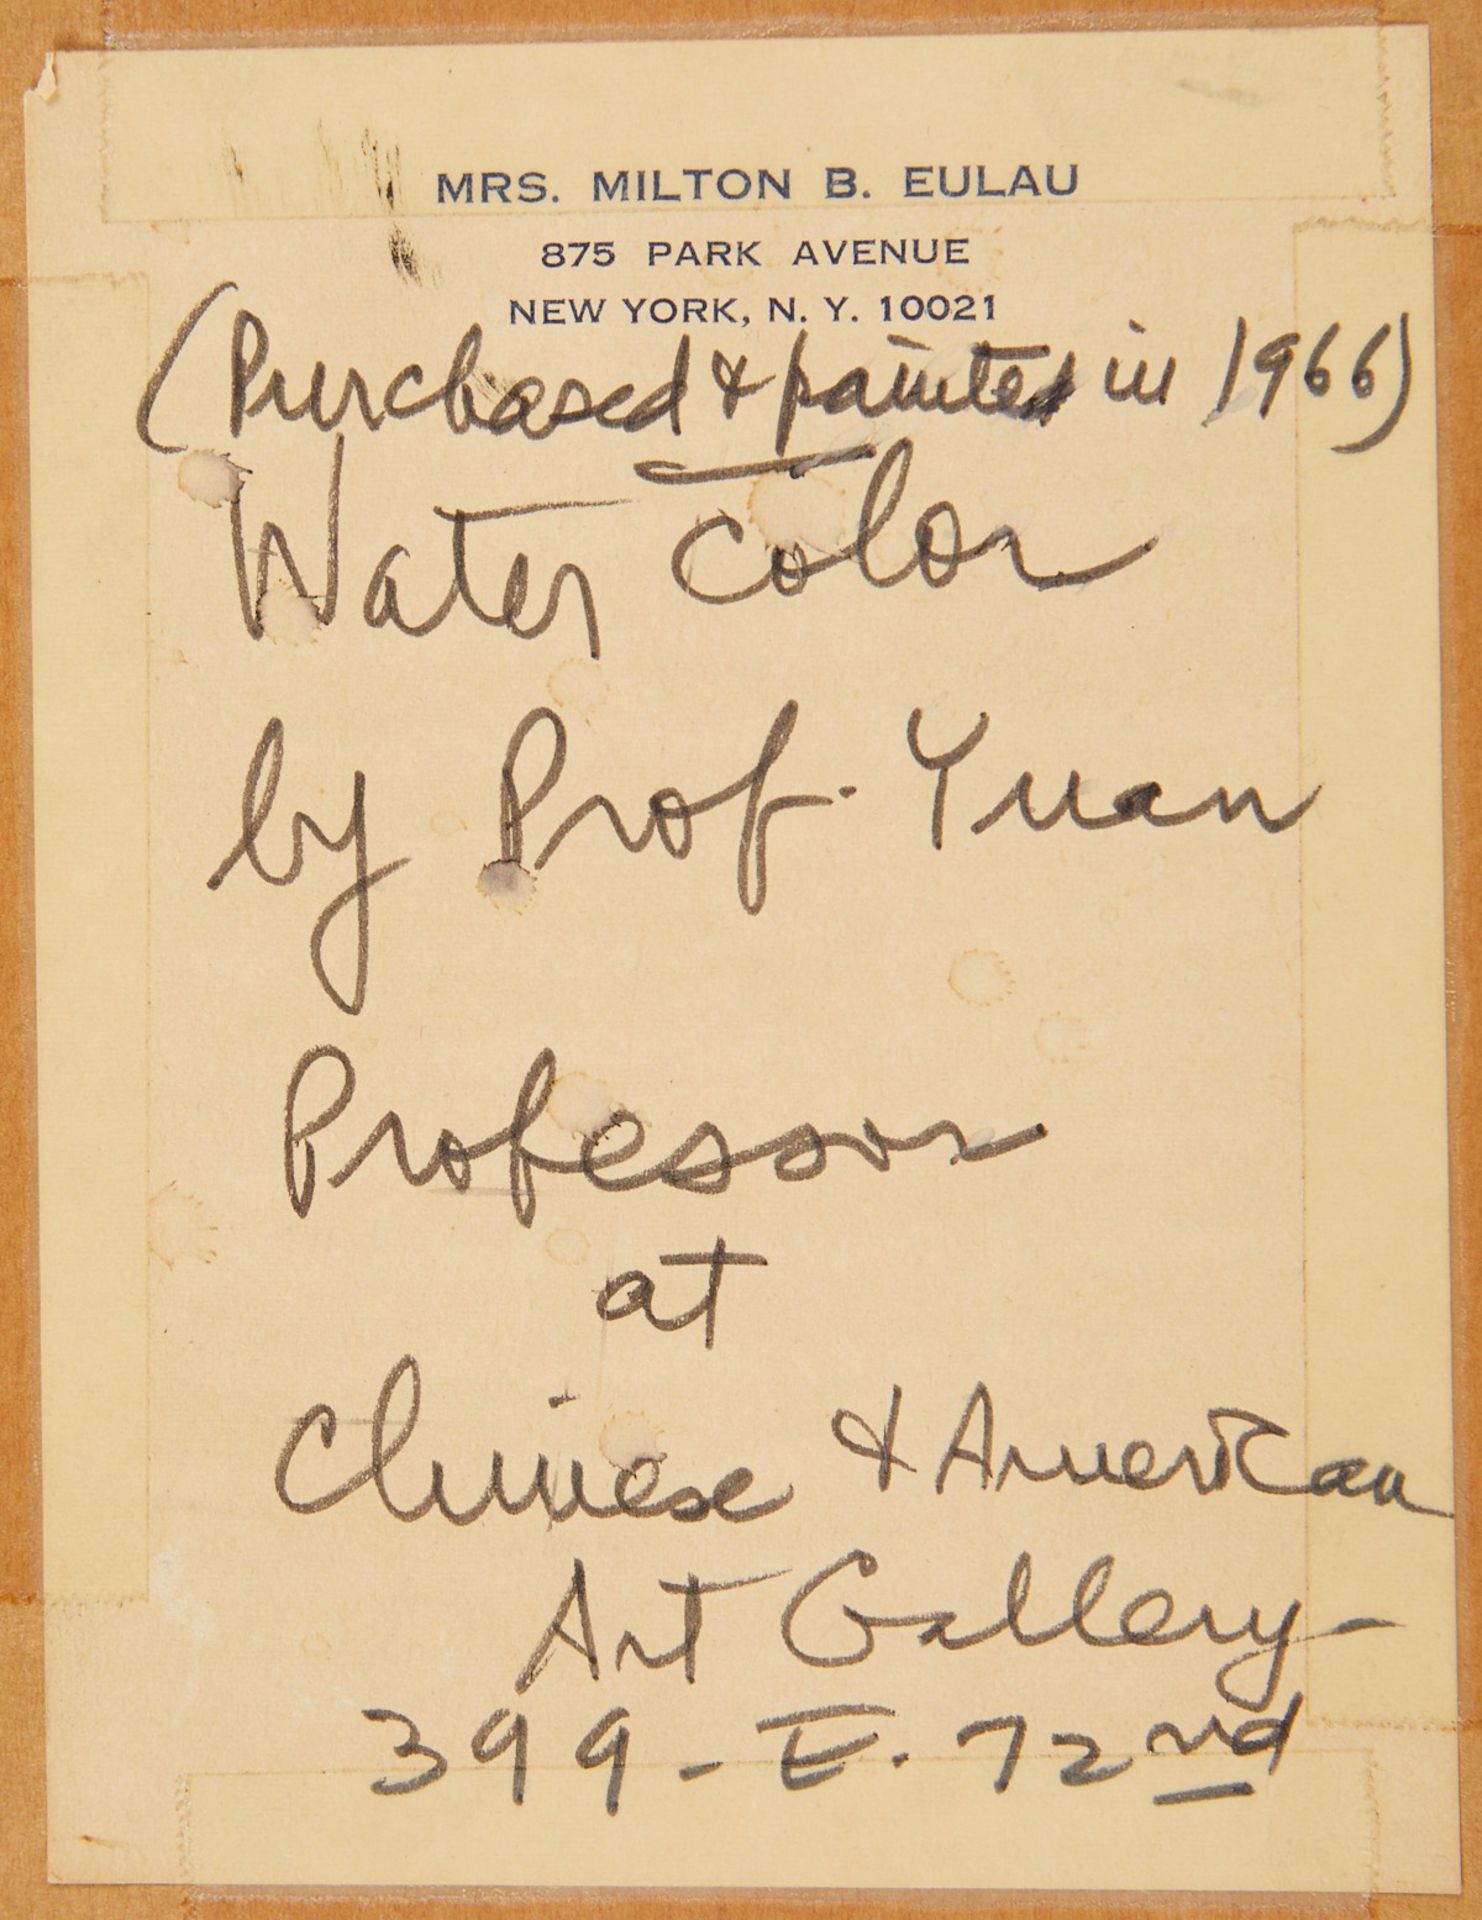 MRS. MILTON B. EULAU
875 PARK AVENUE
NEW YORK, N. Y. 10021
(Purchased & painted in 1966)
Water Color
by Prof. Yuan
Professor
at
Chinese & American
Art Gallery -
399 - E. 72nd